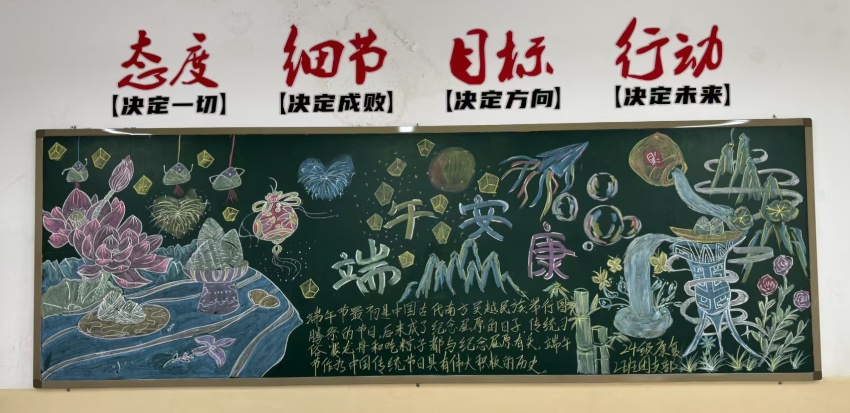 态度 细节 目标 行动
【决定一切】 【决定成败】 【决定方向】 【决定未来】
端午安康
端午节最初是中国古代南方吴越民族举行图
腾祭的节日，后来成了纪念屈原的日子，传统习
俗赛龙舟和吃粽子都与纪念屈原有关，端午
节作为中国传统节日具有伟大积极的历史。
24级康复
2班团支部